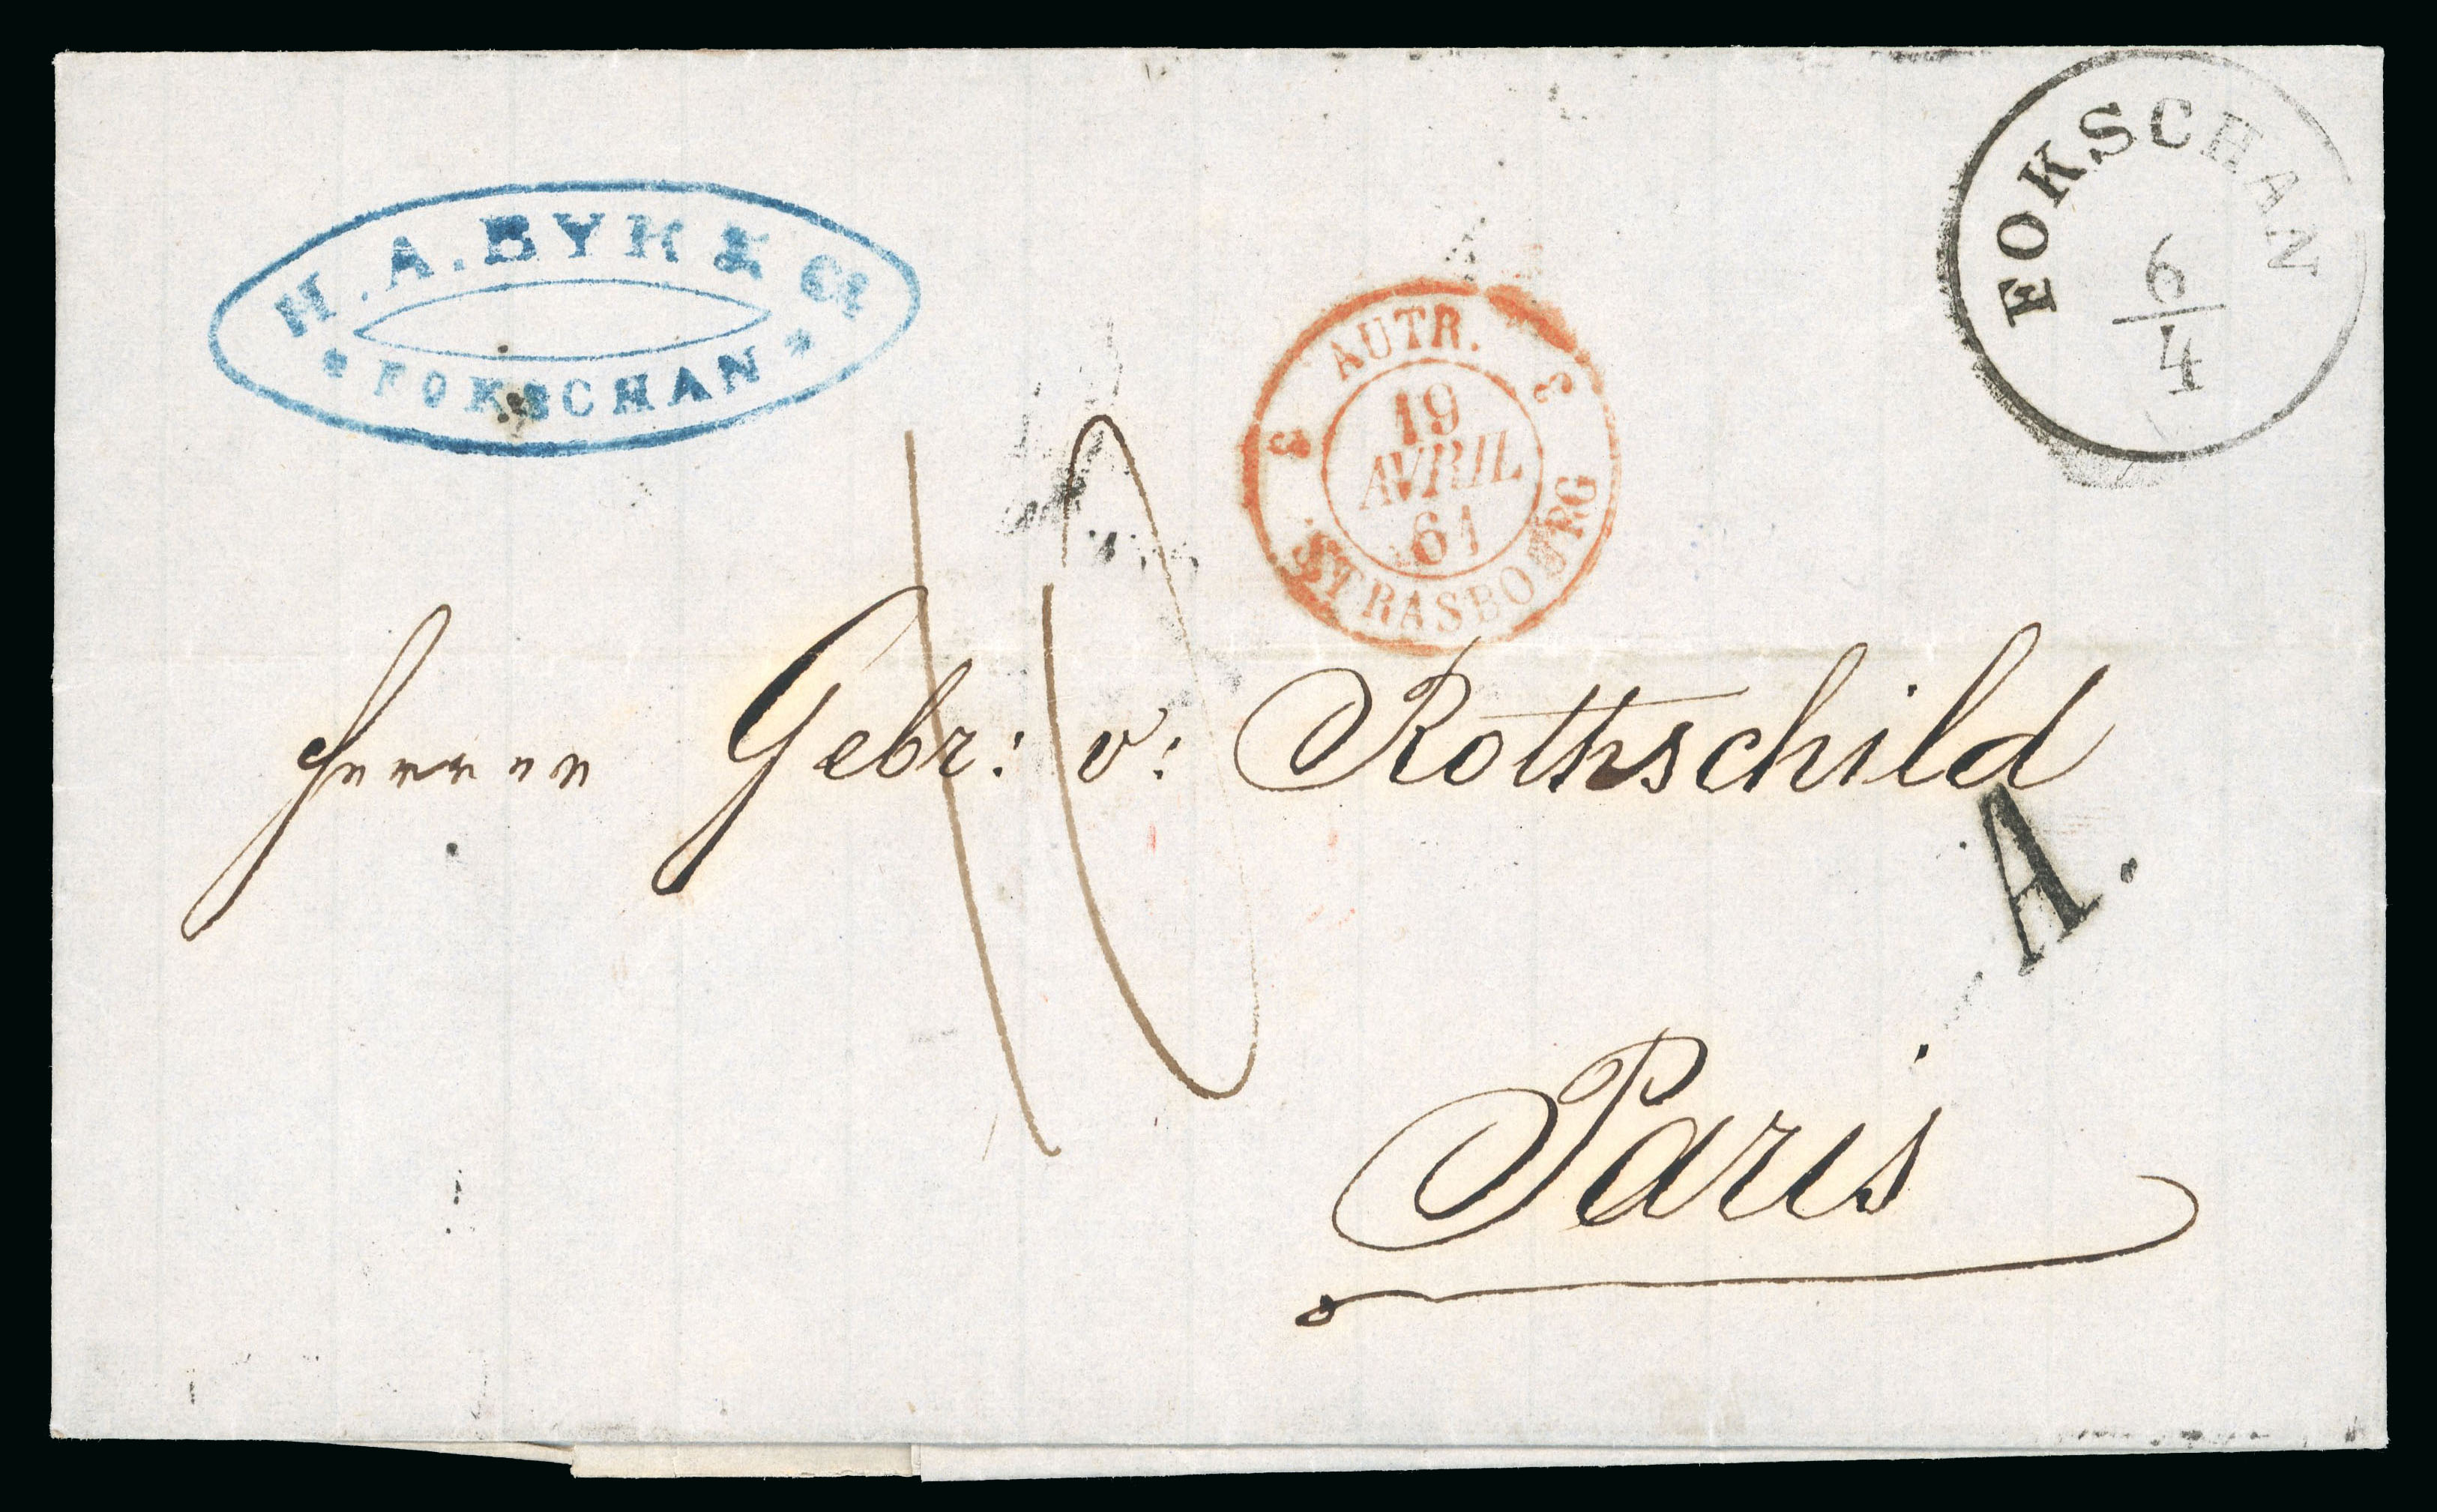 H. A. BYK & Co
* FOKSCHAN *
FOKSCHAN
6/4
3 AUTR. 3
19
AVRIL
61
STRASBOURG
10
Herren Gebr: v: Rothschild
A.
Paris